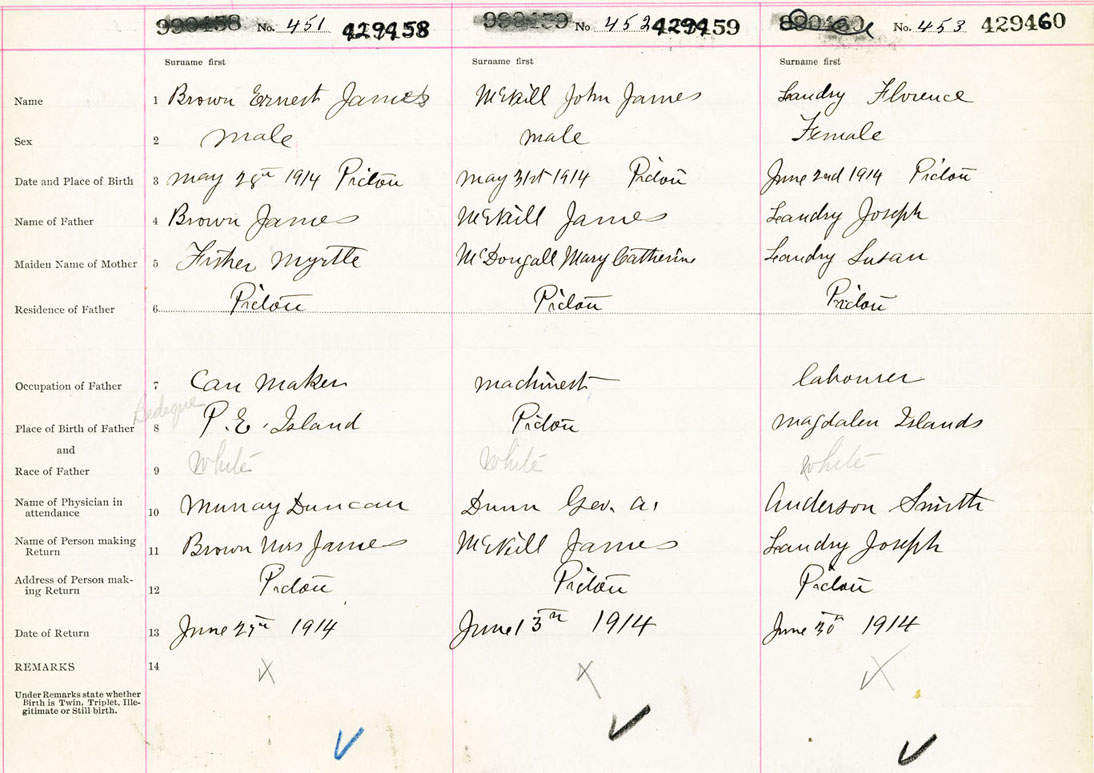 No. 451 429458 No 452 429459 No. 453 429460
Surname first Surname first Surname first
Name 1 Brown Ernest James McKill John James Landry Florence
Sex 2 male male Female
Date and Place of Birth 3 may 28th 1914 Pictou may 31st 1914 Pictou June 2nd 1914 Pictou
Name of Father 4 Brown James McKill James Landry Joseph
Maiden Name of Mother 5 Fisher Myrtle McDougall Mary Catherine Landry Susan
Residence of Father 6 Pictou Pictou Pictou
Occupation of Father 7 Can Maker machinest labourer
Bedeque
Place of Birth of Father 8 P.E. Island Pictou magdalen Islands
and
Race of Father 9 White White White
Name of Physician in
attendance 10 Murray Duncan Dunn Geo. A. Anderson Smith
Name of Person making
Return 11 Brown Mrs James McKill James Landry Joseph
Address of Person mak-
ing Return 12 Pictou Pictou Pictou
Date of Return 13 June 1914 June 13th 1914 June 30th 1914
REMARKS 14 X X X
Under Remarks state whether
Birth is Twin, Triplet, Ille-
gitimate or Still birth.